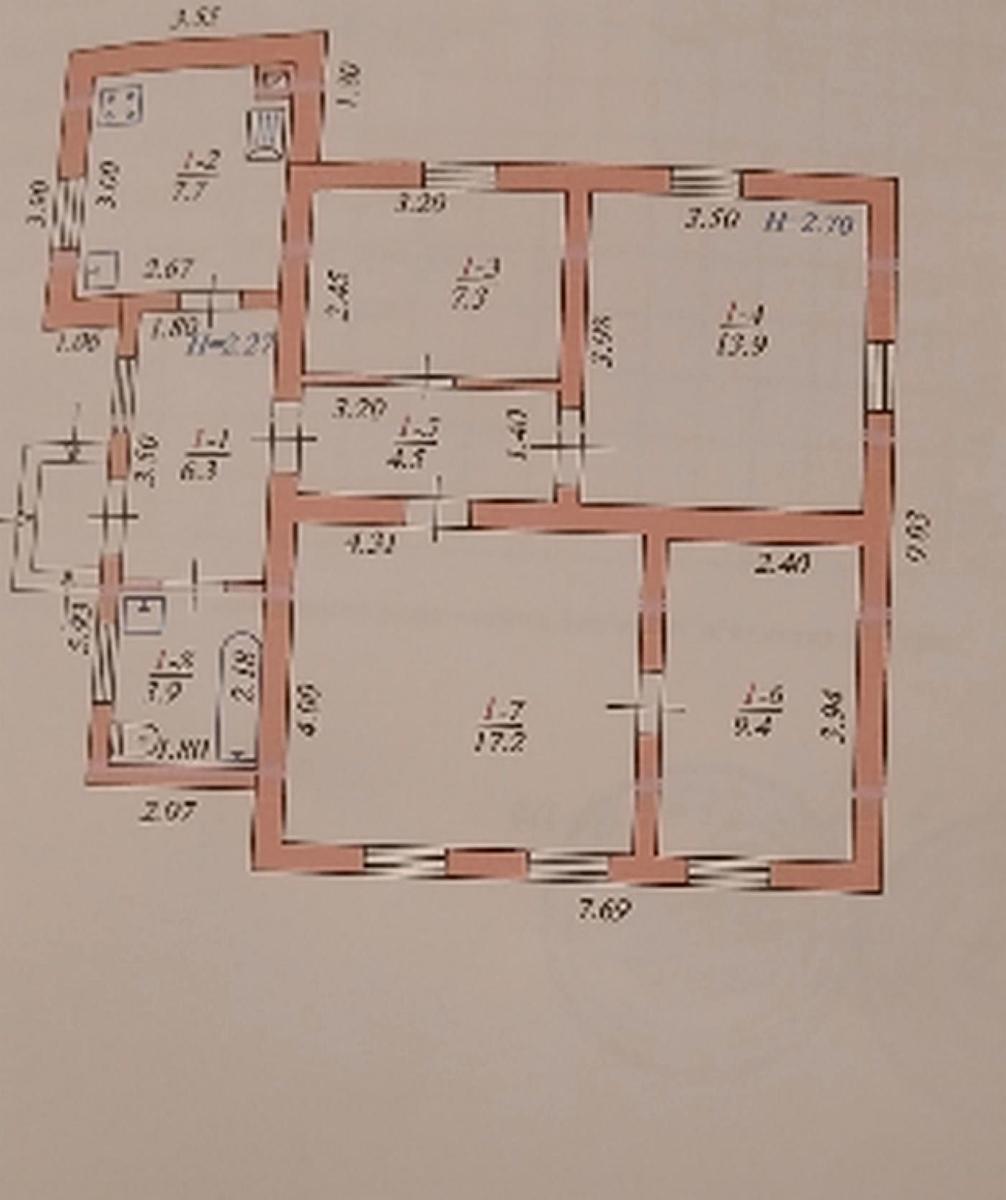 3.55
1.90
3.90
3.00
1-2
7.7
2.67
1.06
1.80
H=2.27
3.20
2.45
1-3
7.3
3.50
H=2.70
1-4
13.9
3.98
3.20
1.40
3.50
1-1
6.3
4.31
2.40
1-8
3.9
2.18
1.80
2.07
4.00
1-7
17.2
1-6
9.4
3.94
7.69